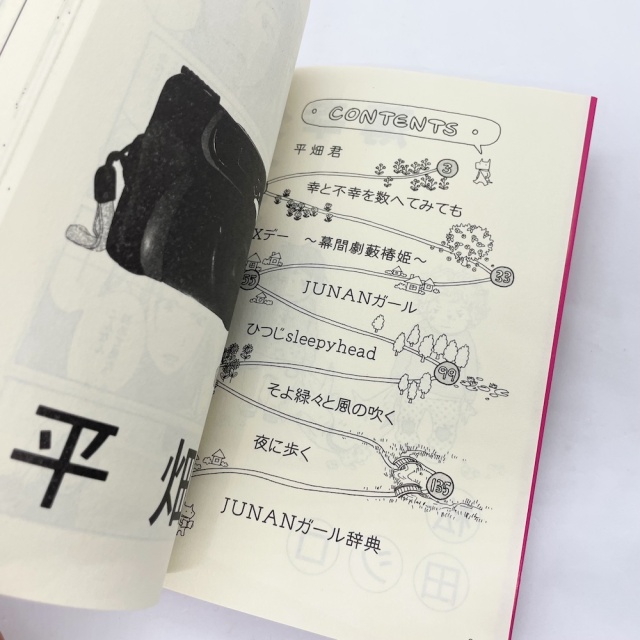 CONTENTS
平畑君
3
幸と不幸を数へてみても
Xデー ～幕間劇藪椿姫～
33
55
JUNANガール
ひつじsleepyhead
99
そよ緑々と風の吹く
夜に歩く
135
JUNANガール辞典
平畑